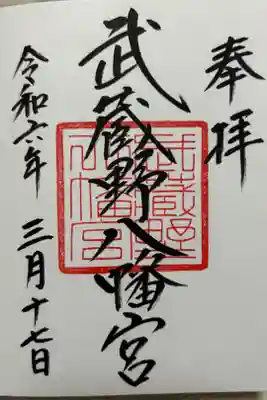 奉拝
武蔵野八幡宮
武蔵野八幡宮
令和六年 三月十七日